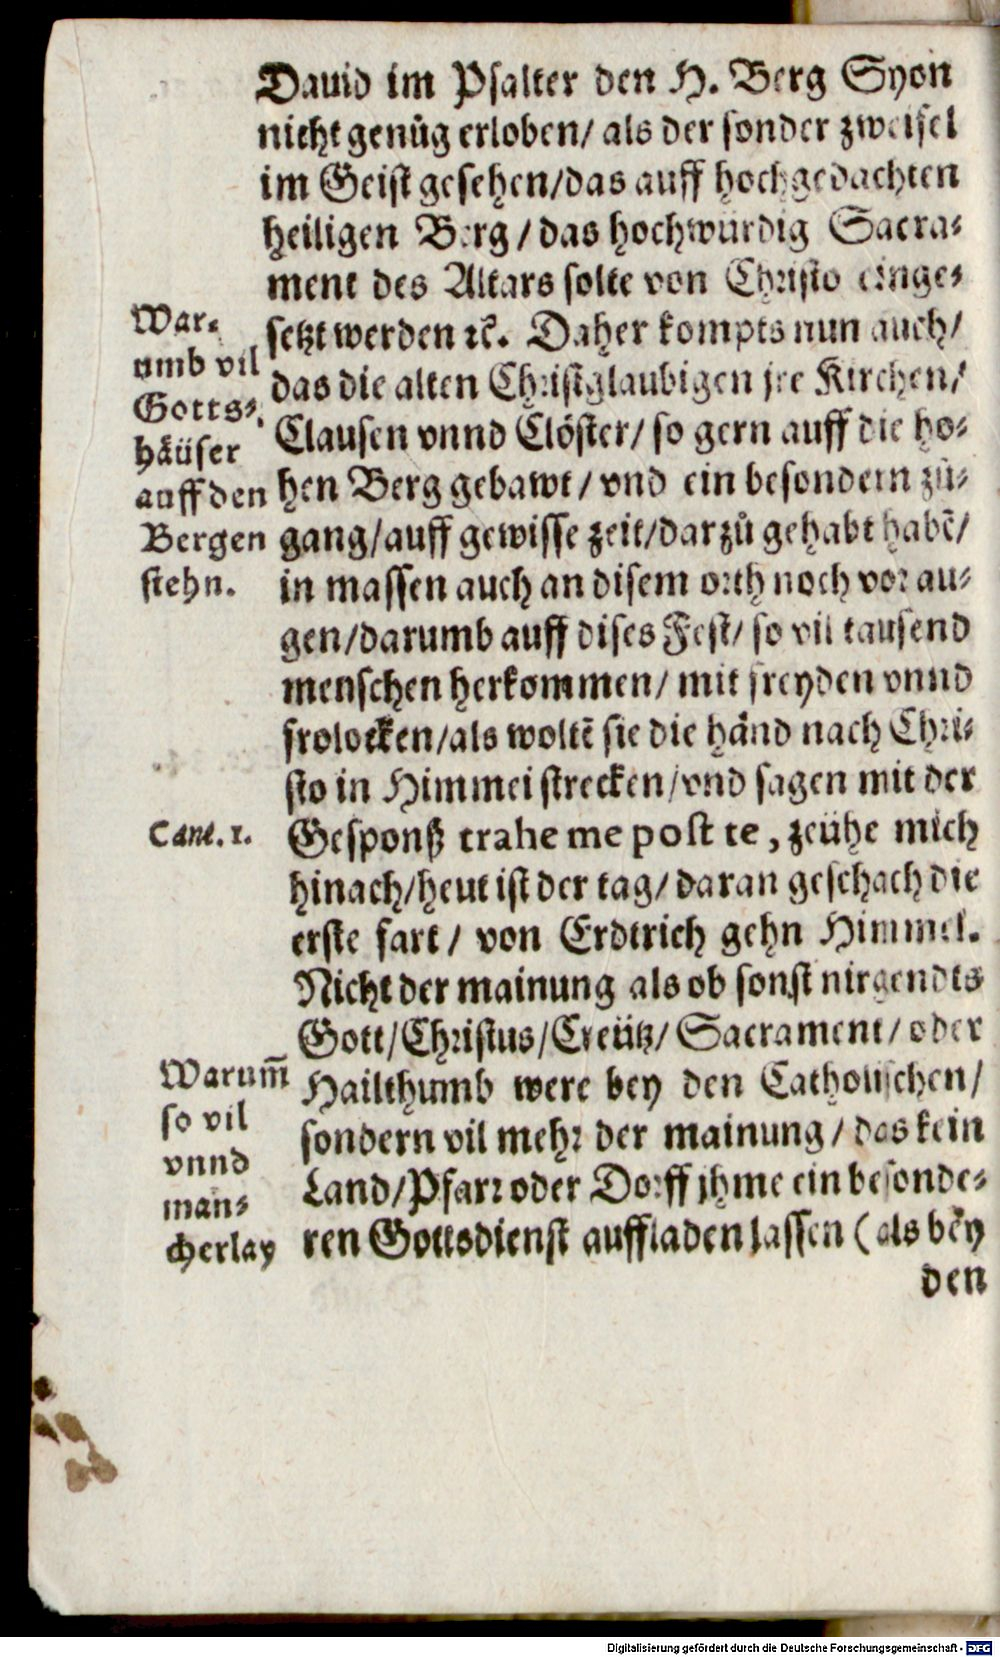 Dauid im Psalter den H. Berg Syon
nicht genůg erloben/ als der sonder zweifel
im Geist gesehen/das auff hochgedachten
heiligen Berg/das hochwürdig Sacra-
ment des Altars solte von Christo einge-
setzt werden ꝛc. Daher kompts nun auch/
das die alten Christglaubigen jre Kirchen/
Clausen vnnd Clöster/ so gern auff die ho-
hen Berg gebawt/ vnd ein besondern zů-
gang/auff gewisse zeit/darzů gehabt habē/
in massen auch an disem orth noch vor au-
gen/darumb auff dises Fest/ so vil tausend
menschen herkommen/ mit freyden vnnd
frolocken/als woltē sie die händ nach Chri-
sto in Himmel strecken/vnd sagen mit der
Gesponß trahe me post te, zeühe mich
hinach/heut ist der tag/ daran geschach die
erste fart/ von Erdtrich gehn Himmel.
Nicht der mainung als ob sonst nirgendts
Gott/Christus/Creütz/ Sacrament/ oder
Hailthumb were bey den Catholischen/
sondern vil mehr der mainung/ das kein
Land/Pfarr oder Dorff jhme ein besonde-
ren Gottsdienst auffladen lassen (als bey
den
War-
umb vil
Gotts-
häüser
auff den
Bergen
stehn.
Cant. 1.
Warum̄
so vil
vnnd
man-
cherlay
Digitalisierung gefördert durch die Deutsche Forschungsgemeinschaft - DFG